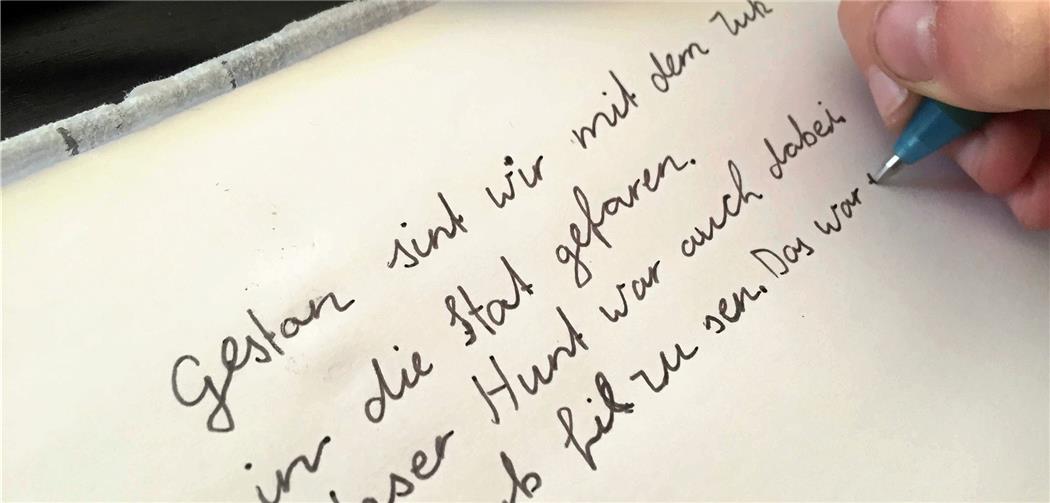 Gestan sint wir mit dem Zuk
in die Stat gefaren.
Hunt war auch dabei.
fil zu sen. Das war